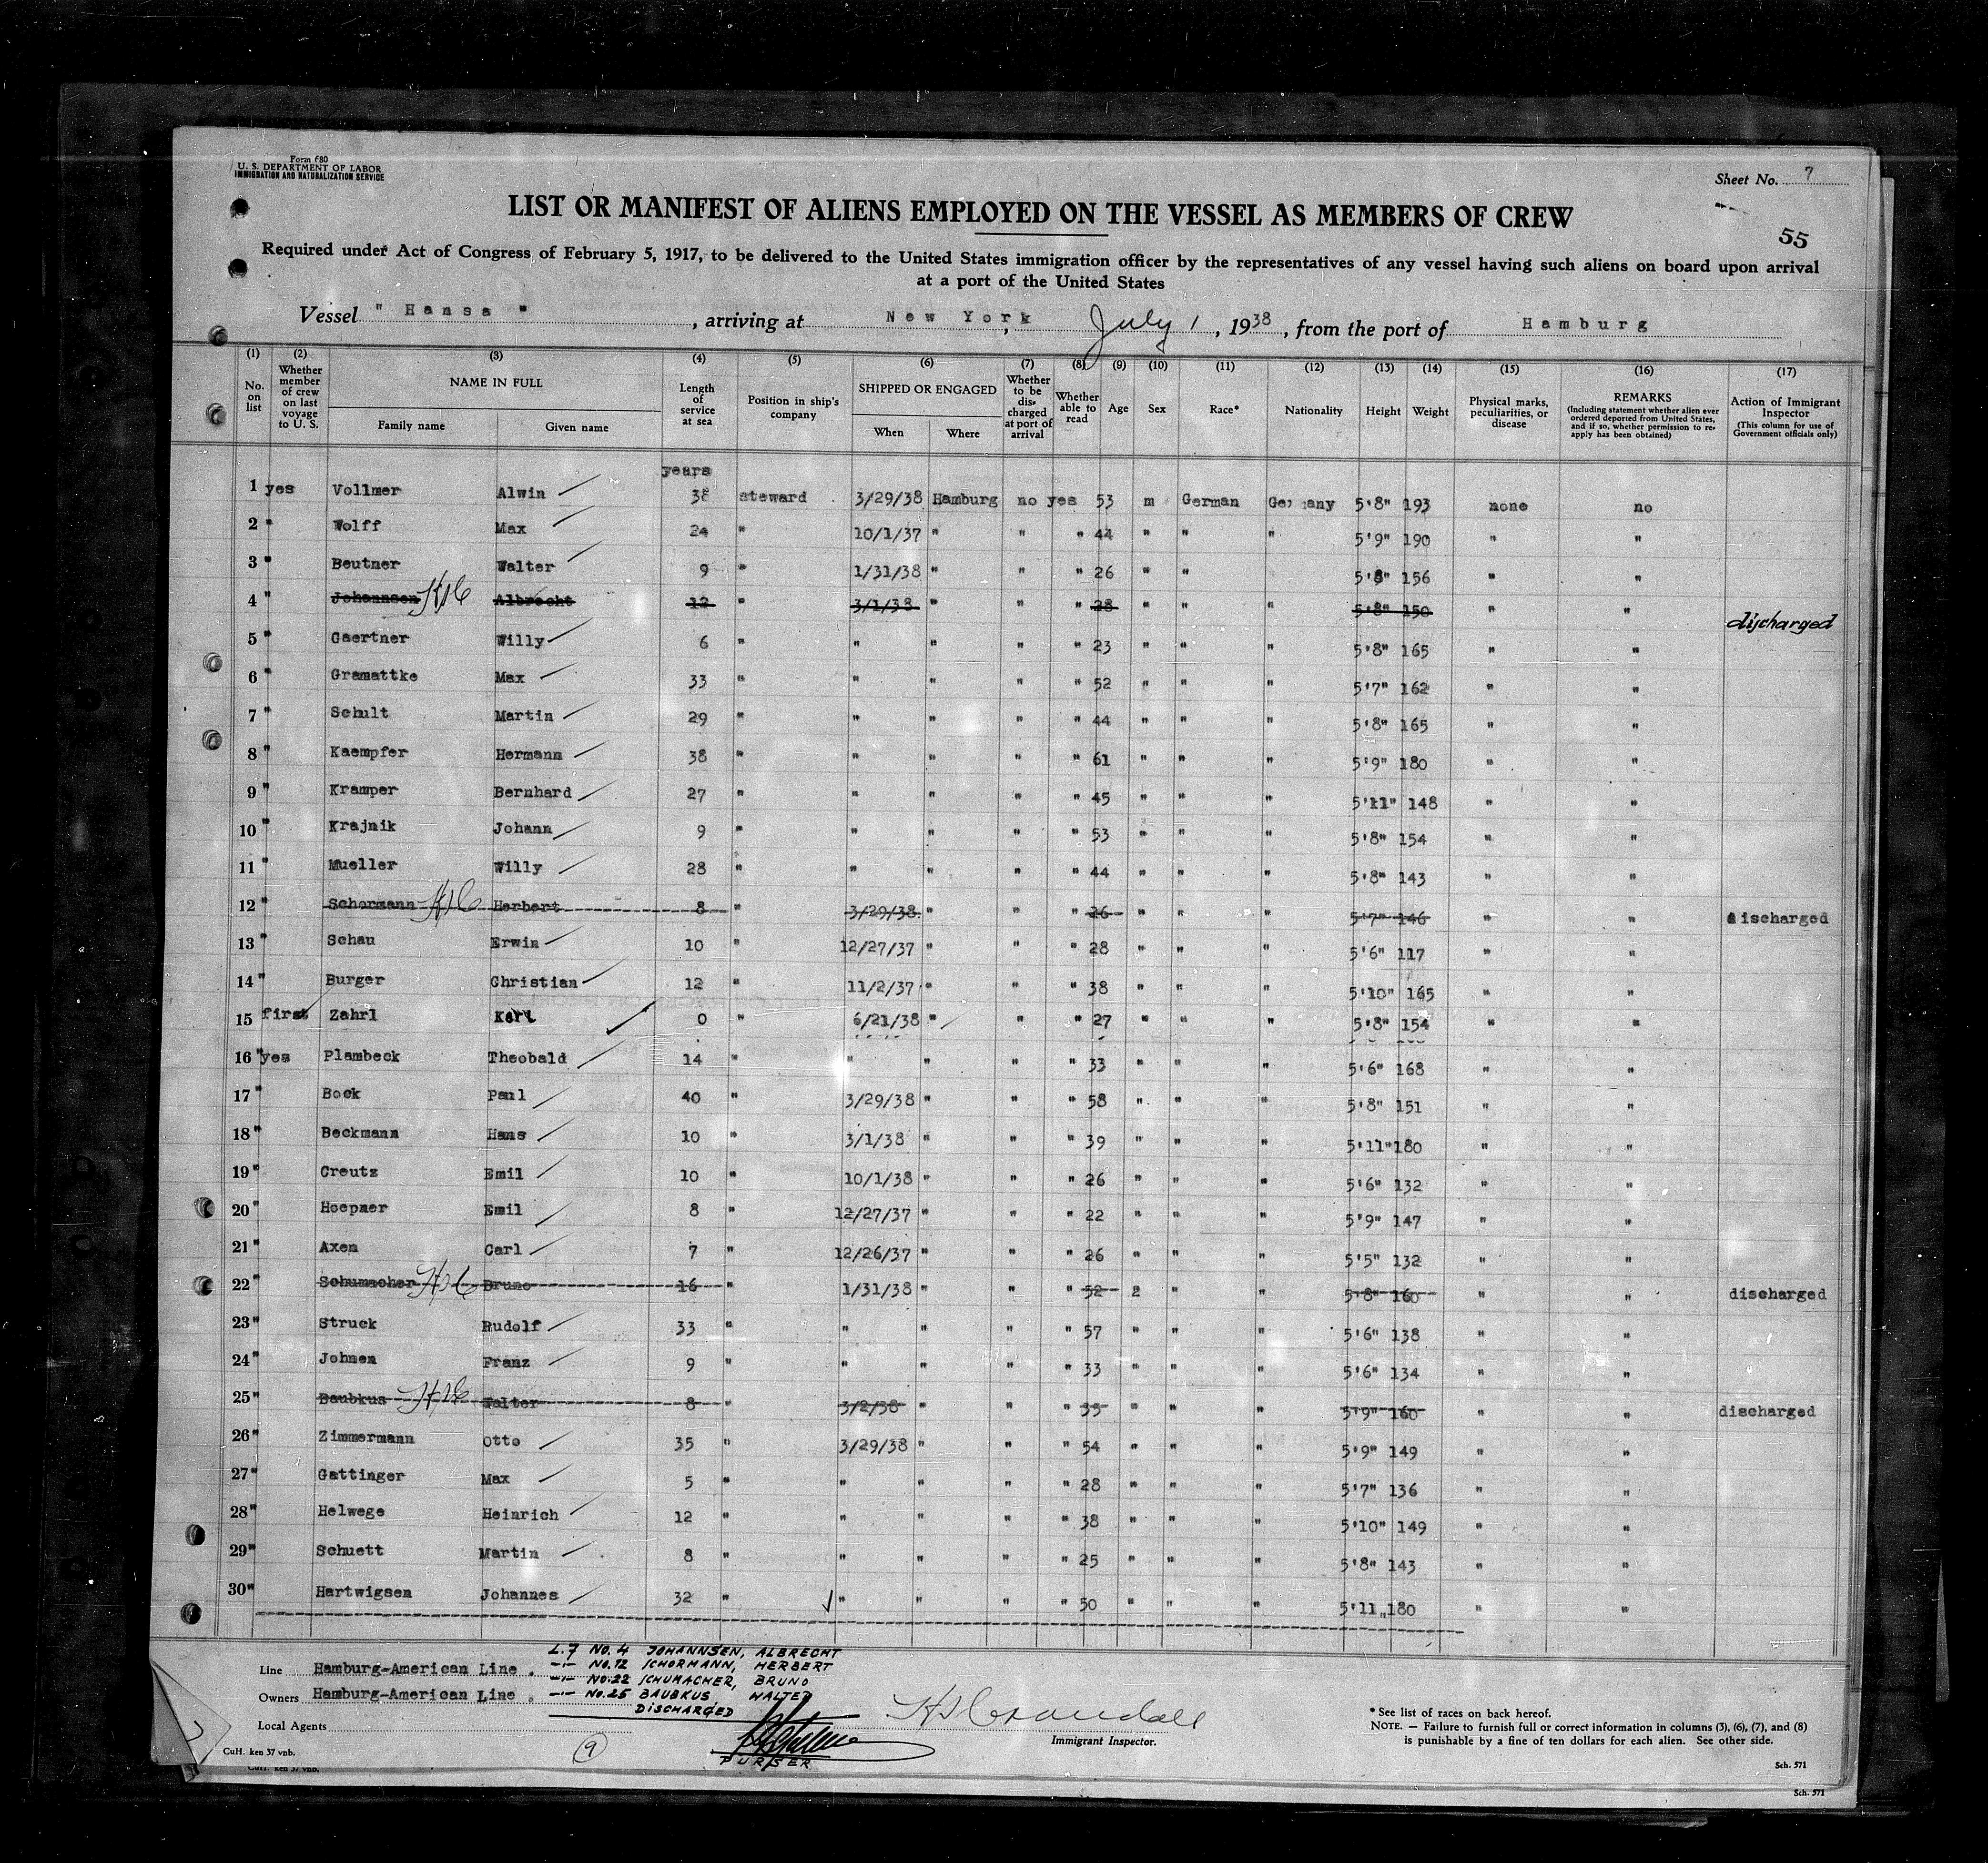 Form 680
U. S. DEPARTMENT OF LABOR
IMMIGRATION AND NATURALIZATION SERVICE
Sheet No. 7
55
LIST OR MANIFEST OF ALIENS EMPLOYED ON THE VESSEL AS MEMBERS OF CREW
Required under Act of Congress of February 5, 1917, to be delivered to the United States immigration officer by the representatives of any vessel having such aliens on board upon arrival
at a port of the United States
Vessel " Hansa " , arriving at New York, July 1, 1938, from the port of Hamburg
(1) No. on list (2) Whether member of crew on last voyage to U. S. (3) NAME IN FULL Family name Given name (4) Length of service at sea (5) Position in ship's company (6) SHIPPED OR ENGAGED When Where (7) Whether to be dis-charged at port of arrival (8) Whether able to read (9) Age (10) Sex (11) Race* (12) Nationality (13) Height (14) Weight (15) Physical marks, peculiarities, or disease (16) REMARKS (Including statement whether alien ever ordered deported from United States, and if so, whether permission to re-apply has been obtained) (17) Action of Immigrant Inspector (This column for use of Government officials only)
years
1 yes Vollmer Alwin 38 steward 3/29/38 Hamburg no yes 53 m German Germany 5'8" 193 none no
2 " Wolff Max 24 " 10/1/37 " " " 44 " " " 5'9" 190 " "
3 " Beutner Walter 9 " 1/31/38 " " " 26 " " 5'8" 156 " "
4 " Johannsen Albrecht 12 " 3/1/38 " " " 28 " " " 5'8" 150 " " discharged
5 " Gaertner Willy 6 " " " " " 23 " " " 5'8" 165 " "
6 " Gramattke Max 33 " " " " " 52 " " " 5'7" 162 " "
7 " Schult Martin 29 " " " " " 44 " " " 5'8" 165 " "
8 " Kaempfer Hermann 38 " " " " " 61 " " " 5'9" 180 " "
9 " Kramper Bernhard 27 " " " " " 45 " " " 5'11" 148 " "
10 " Krajnik Johann 9 " " " " " 53 " " " 5'8" 154 " "
11 " Mueller Willy 28 " " " " " 44 " " " 5'8" 143 " "
12 " Schormann Herbert 8 " 3/29/38 " " " 26 " " " 5'7" 146 " " discharged
13 " Schau Erwin 10 " 12/27/37 " " " 28 " " " 5'6" 117 " "
14 " Burger Christian 12 " 11/2/37 " " " 38 " " " 5'10" 165 " "
15 first Zahrl Karl 0 " 6/21/38 " " " 27 " " " 5'8" 154 " "
16 "yes Plambeck Theobald 14 " " " " " 33 " " " 5'6" 168 " "
17 " Bock Paul 40 " 3/29/38 " " " 58 " " " 5'8" 151 " "
18 " Beckmann Hans 10 " 3/1/38 " " " 39 " " " 5'11" 180 " "
19 " Creutz Emil 10 " 10/1/38 " " " 26 " " " 5'6" 132 " "
20 " Hoepner Emil 8 " 12/27/37 " " " 22 " " " 5'9" 147 " "
21 " Axen Carl 7 " 12/26/37 " " " 26 " " " 5'5" 132 " "
22 " Schumacher Bruno 16 " 1/31/38 " " " 52 2 " " 5'8" 160 " " discharged
23 " Struck Rudolf 33 " " " " " 57 " " " 5'6" 138 " "
24 " Johnen Franz 9 " " " " " 33 " " " 5'6" 134 " "
25 " Baubkus Walter 8 " 3/2/38 " " " 35 " " " 5'9" 160 " " discharged
26 " Zimmermann Otto 35 " 3/29/38 " " " 54 " " " 5'9" 149 " "
27 " Gattinger Max 5 " " " " " 28 " " " 5'7" 136 " "
28 " Helwege Heinrich 12 " " " " " 38 " " " 5'10" 149 " "
29 " Schuett Martin 8 " " " " " 25 " " " 5'8" 143 " "
30 " Hartwigsen Johannes 32 " " " " " 50 " " " 5'11" 180 " "
L.7 No. 4 JOHANNSEN, ALBRECHT
-"- No. 12 SCHORMANN, HERBERT
-"- No. 22 SCHUMACHER, BRUNO
-"- No. 25 BAUBKUS, WALTER
DISCHARGED
Line Hamburg-American Line.
Owners Hamburg-American Line.
Local Agents
PURSER
9
HJCrandall
Immigrant Inspector.
* See list of races on back hereof.
NOTE. — Failure to furnish full or correct information in columns (3), (6), (7), and (8)
is punishable by a fine of ten dollars for each alien. See other side.
CuH. ken 37 vnb.
Sch. 571
CuH. ken 37 vnb.
Sch. 571